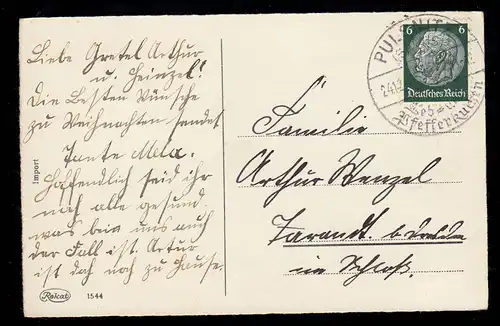 Liebe Gretel Arthur
u. Heinzel!
Die Besten Wünsche
zu Weihnachten sendet
Tante Meta.
Hoffendlich seid ihr
noch alle gesund
was bei uns auch
der Fall ist. Artur
ist doch noch zu Hause.
Import
Reicat 1544
PULSNITZ
24.12
Pfefferkuchen
6 6
Deutsches Reich
Familie
Arthur Wenzel
Tarandt b. Dresden
im Schloß.